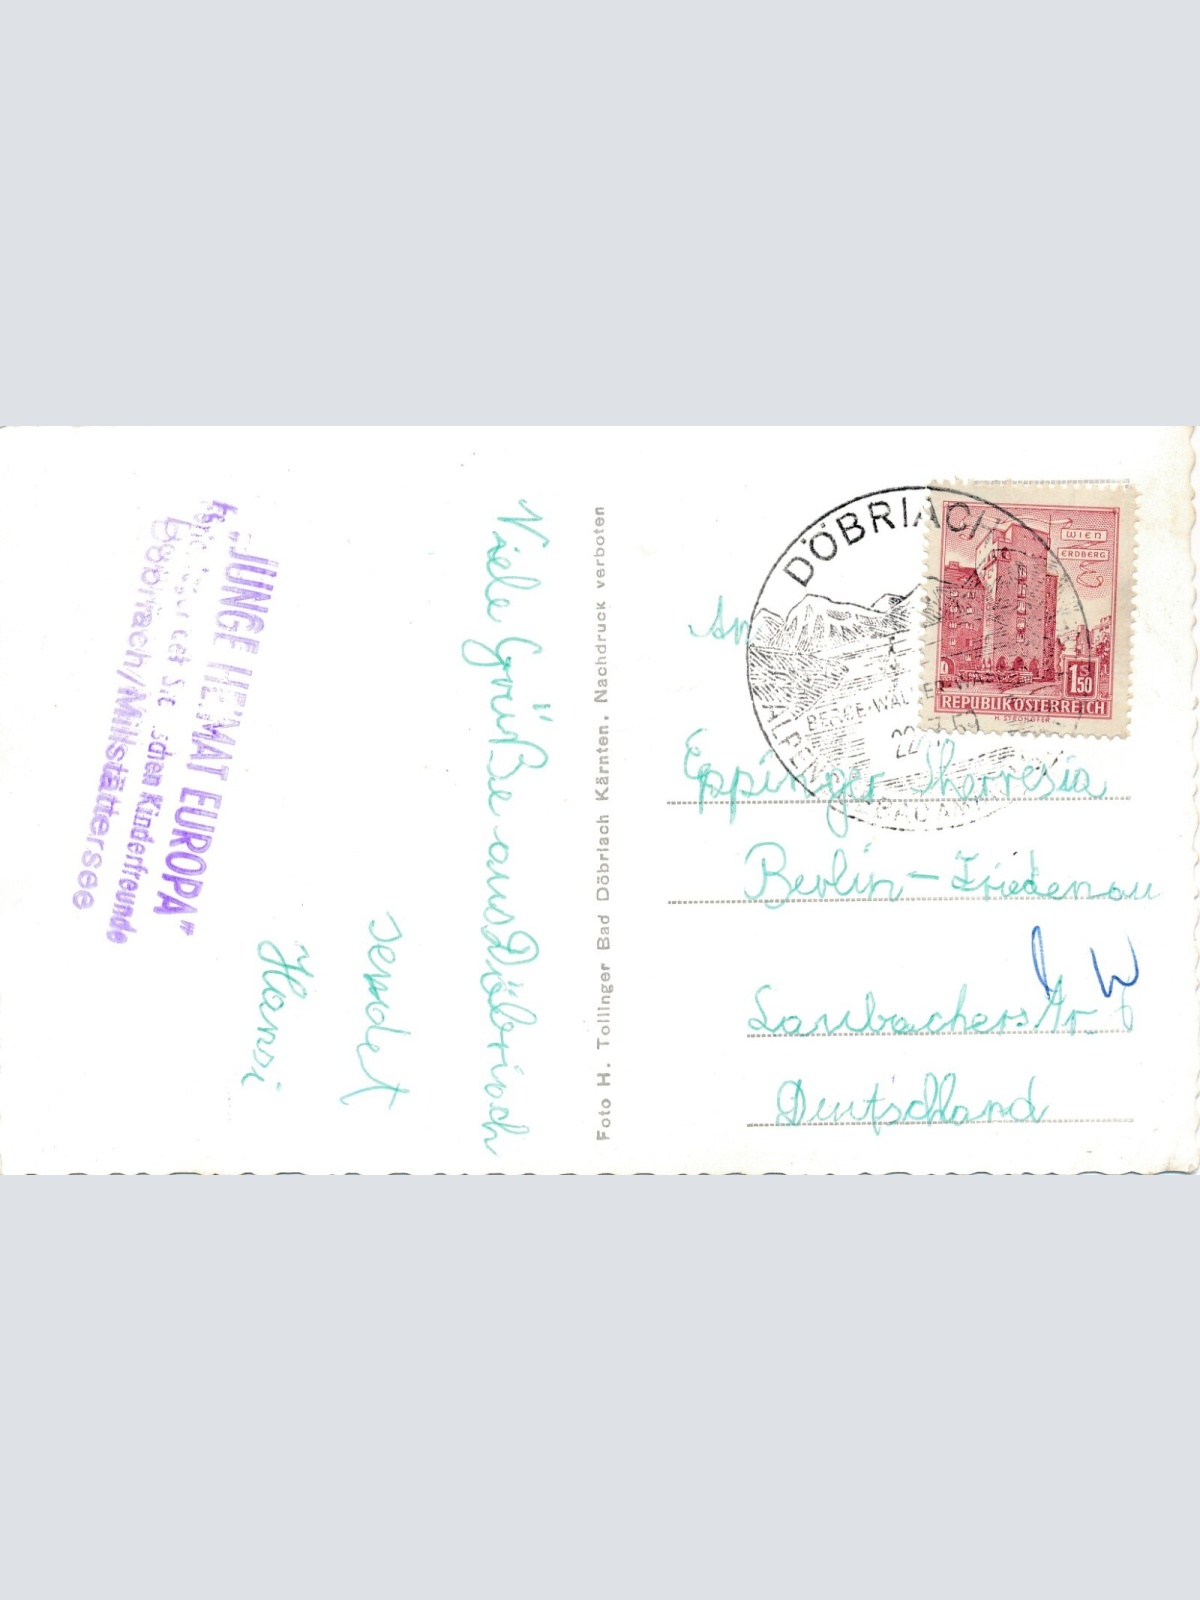 „JUNGE HEIMAT EUROPA"
Kinderfreunde
Döbriach/Millstättersee
Viele Grüße aus Döbriach
sendet
Hansi
Foto H. Tollinger Bad Döbriach Kärnten. Nachdruck verboten
DÖBRIACH
BERGE-WÄLDER-WASSER
22.
WIEN
ERDBERG
S
1.50
REPUBLIK ÖSTERREICH
H. STROHOFER
An
Eppinger Therresia
Berlin-Friedenau
Laubacherstr. 6
Deutschland